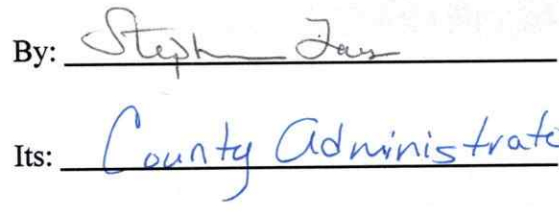 By: Stephen
Its: County Administrato